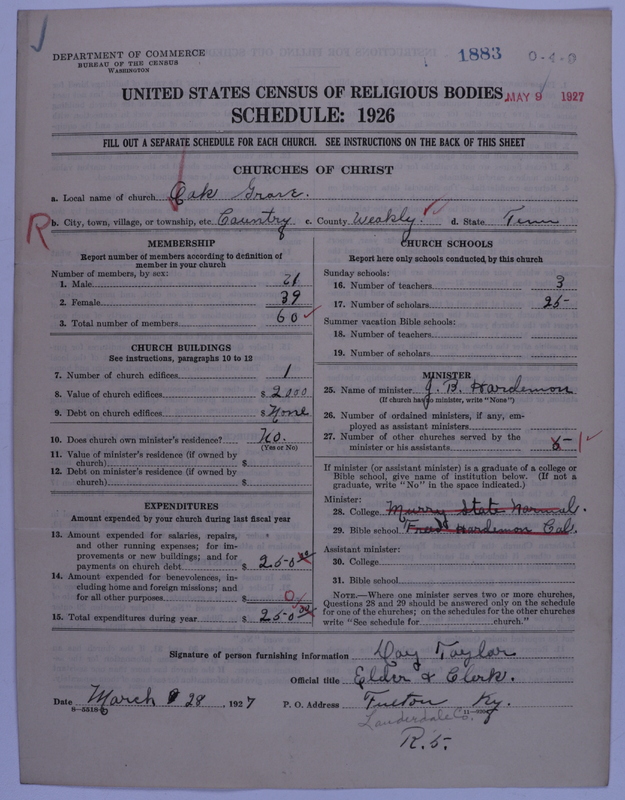 DEPARTMENT OF COMMERCE
BUREAU OF THE CENSUS
WASHINGTON
1883 0-4-9
UNITED STATES CENSUS OF RELIGIOUS BODIES
MAY 9 1927
SCHEDULE: 1926
FILL OUT A SEPARATE SCHEDULE FOR EACH CHURCH. SEE INSTRUCTIONS ON THE BACK OF THIS SHEET
CHURCHES OF CHRIST
a. Local name of church Oak Grove.
R b. City, town, village, or township, etc. Country c. County Weakly. d. State Tenn
MEMBERSHIP
Report number of members according to definition of
member in your church
Number of members, by sex:
1. Male 21
2. Female 39
3. Total number of members 60
CHURCH BUILDINGS
See instructions, paragraphs 10 to 12
7. Number of church edifices 1
8. Value of church edifices $ 2000
9. Debt on church edifices $ None
10. Does church own minister's residence? No.
(Yes or No)
11. Value of minister's residence (if owned by
church) $
12. Debt on minister's residence (if owned by
church) $
EXPENDITURES
Amount expended by your church during last fiscal year
13. Amount expended for salaries, repairs,
and other running expenses; for im-
provements or new buildings; and for
payments on church debt $ 250 00
14. Amount expended for benevolences, in-
cluding home and foreign missions; and
for all other purposes $ 0
15. Total expenditures during year $ 250 00
CHURCH SCHOOLS
Report here only schools conducted by this church
Sunday schools:
16. Number of teachers 3
17. Number of scholars 25
Summer vacation Bible schools:
18. Number of teachers
19. Number of scholars
MINISTER
25. Name of minister J. B. Hardemon
(If church has no minister, write "None")
26. Number of ordained ministers, if any, em-
ployed as assistant ministers
27. Number of other churches served by the
minister or his assistants 1
If minister (or assistant minister) is a graduate of a college or
Bible school, give name of institution below. (If not a
graduate, write "No" in the space indicated.)
Minister:
28. College Murry State Normal.
29. Bible school Freed Hardemon Col.
Assistant minister:
30. College
31. Bible school
NOTE.—Where one minister serves two or more churches,
Questions 28 and 29 should be answered only on the schedule
for one of the churches; on the schedules for the other churches
write "See schedule for church."
Signature of person furnishing information Day Taylor
Official title Elder & Clerk.
Date March 28, 1927 P. O. Address Fulton Ky.
8-5518
Lauderdale Co.
R. 5.